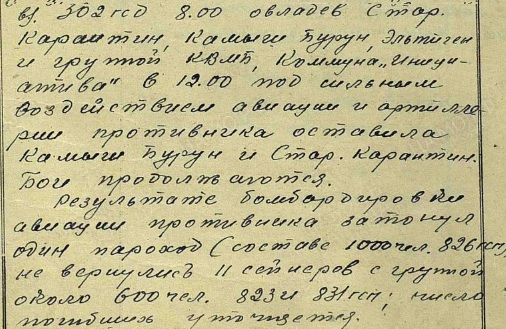 в) 302 гсд 8.00 овладев Стар.
Карантин, Камыш Бурун, Эльтиген
и группой КВМБ, Коммуна „Иници-
атива" в 12.00 под сильным
воздействием авиации и артилле-
рии противника оставила
Камыш Бурун и Стар. Карантин.
Бои продолжаются.
Результате бомбардировки
авиации противника затонул
один пароход (составе 1000 чел. 826 гсп),
не вернулись 11 сейнеров с группой
около 600 чел. 823 и 831 гсп; число
погибших уточняется.